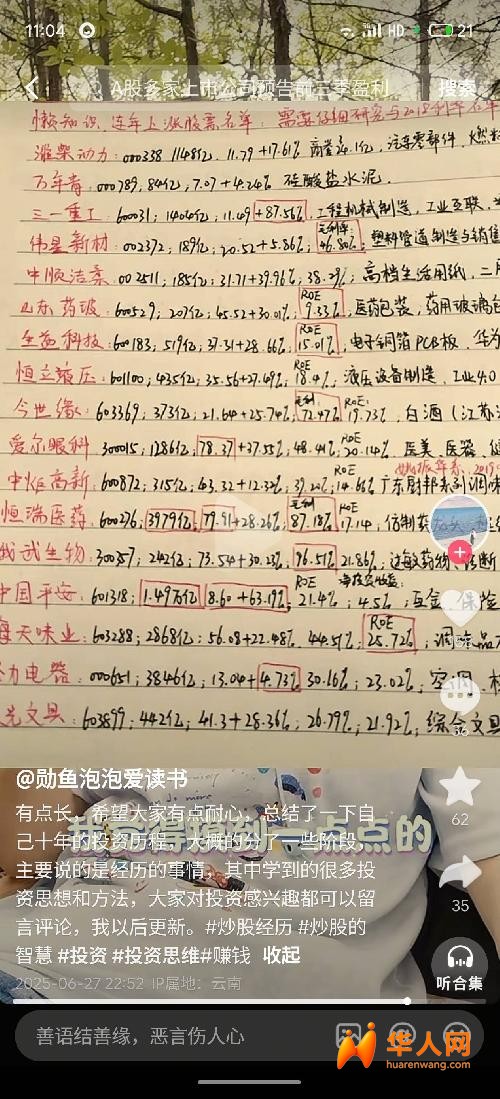 11:04
HD
21
A股多家上市公司预告前三季盈利
搜索
懒知识, 连年上涨股票名单: 需要仔细研究
潍柴动力: 000338 1148亿, 11.79+17.61%
万年青: 000789, 84亿, 7.07+4.24% 硅酸盐水泥.
三一重工: 600031; 1404亿, 11.09+87.56%, 工程机械制造, 工业互联
伟星新材: 002372; 189亿; 20.52+5.86%; 毛利率: 46.80%; 塑料管道制造与销售
中顺洁柔: 002511; 185亿; 31.71+39.96%, 38.2%; 高档生活用纸
山东药玻: 600529; 207亿; 45.52+30.01%, ROE 9.33%, 医药包装, 药用玻璃
生益科技: 600183; 519亿; 37.31+28.66%, ROE 15.01%, 电子铜箔PCB板, 华为
恒立液压: 601100; 435亿; 35.56+27.49%, ROE 18.4%, 液压设备制造, 工业4.0
今世缘: 603369; 373亿; 21.64+25.74%, 毛利: 72.47% ROE: 19.73%, 白酒(江苏
爱尔眼科 300015; 1286亿; 78.37+37.55%, 48.41% ROE 20.14%, 医美、医器
中炬高新: 600872; 315亿; 43.32+12.32%, 39.20% ROE 14.66% 广东厨邦系列调味
恒瑞医药: 600276, 3979亿, 79.91+28.26%, 毛利 87.18% ROE 17.14, 仿制药
我武生物: 300357; 242亿; 73.54+30.23%, 96.51% 21.86%
中国平安: 601318; 1.49万亿 8.60+63.19%; ROE 21.4%, 4.5%, 保险
海天味业: 603288; 2868亿; 56.08+22.48%, 44.51% ROE 25.72%
格力电器: 000651; 3846亿; 13.04+4.73% 30.16%; 23.02%, 空调
晨光文具: 603899; 442亿; 41.3+28.36%, 26.79%, 21.92%, 综合文具
@勋鱼泡泡爱读书
有点长，希望大家有点耐心，总结了一下自
己十年的投资历程，大概的分了一些阶段，
主要说的是经历的事情，其中学到的很多投
资思想和方法，大家对投资感兴趣都可以留
言评论，我以后更新。#炒股经历 #炒股的
智慧 #投资 #投资思维#赚钱 收起
点点的
62
35
听合集
2025-06-27 22:52 IP属地：云南
善语结善缘，恶言伤人心
华人网
huarenwang.com